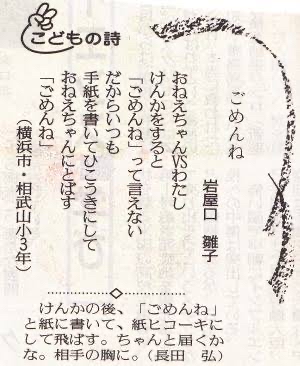 こどもの詩
ごめんね
岩屋口 雛子
おねえちゃんVSわたし
けんかをすると
「ごめんね」って言えない
だからいつも
手紙を書いてひこうきにして
おねえちゃんにとばす
「ごめんね」
（横浜市・相武山小3年）
けんかの後、「ごめんね」
と紙に書いて、紙ヒコーキに
して飛ばす。ちゃんと届くか
な。相手の胸に。（長田 弘）